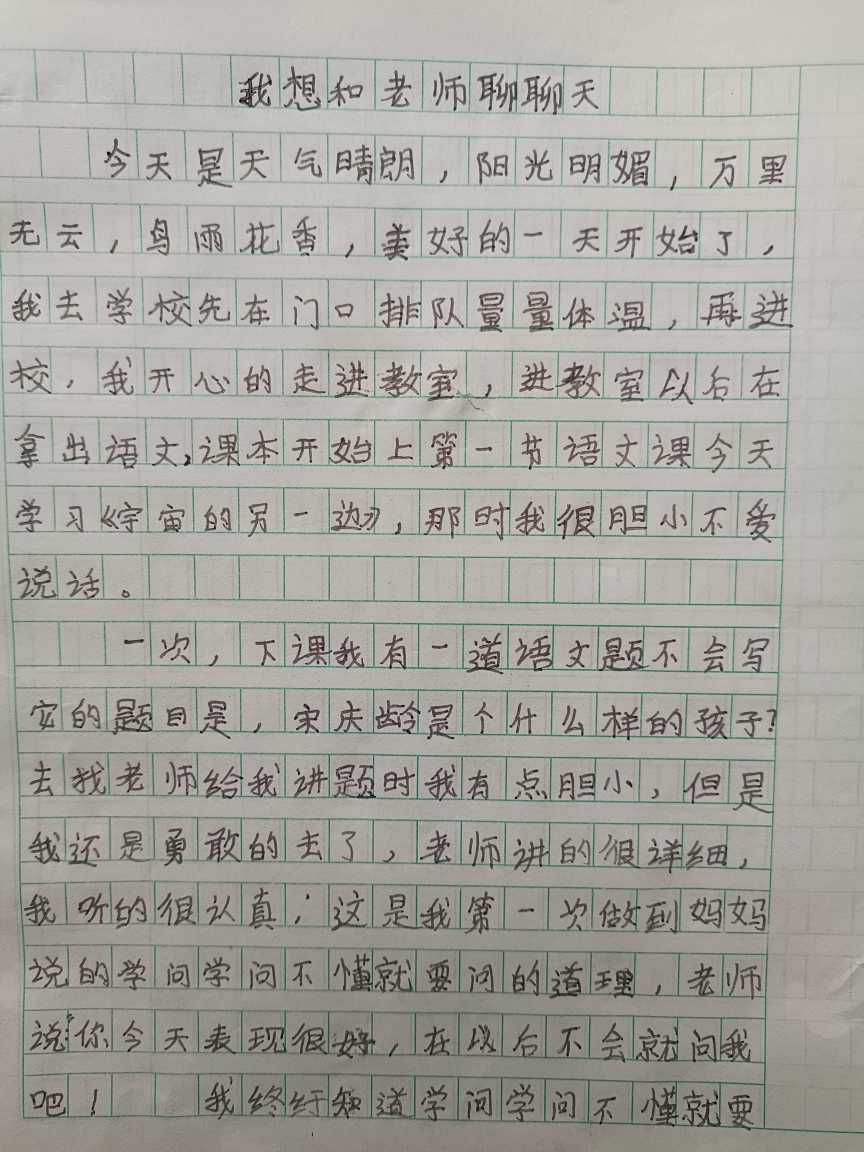 我想和老师聊聊天
今天是天气晴朗，阳光明媚，万里
无云，鸟雨花香，美好的一天开始了，
我去学校先在门口排队量量体温，再进
校，我开心的走进教室，进教室以后在
拿出语文，课本开始上第一节语文课今天
学习《宇宙的另一边》，那时我很胆小不爱
说话。
一次，下课我有一道语文题不会写
它的题目是，宋庆龄是个什么样的孩子？
去找老师给我讲题时我有点胆小，但是
我还是勇敢的去了，老师讲的很详细，
我听的很认真，这是我第一次做到妈妈
说的学问学问不懂就要问的道理，老师
说：你今天表现很好，在以后不会就问我
吧！我终于知道学问学问不懂就要